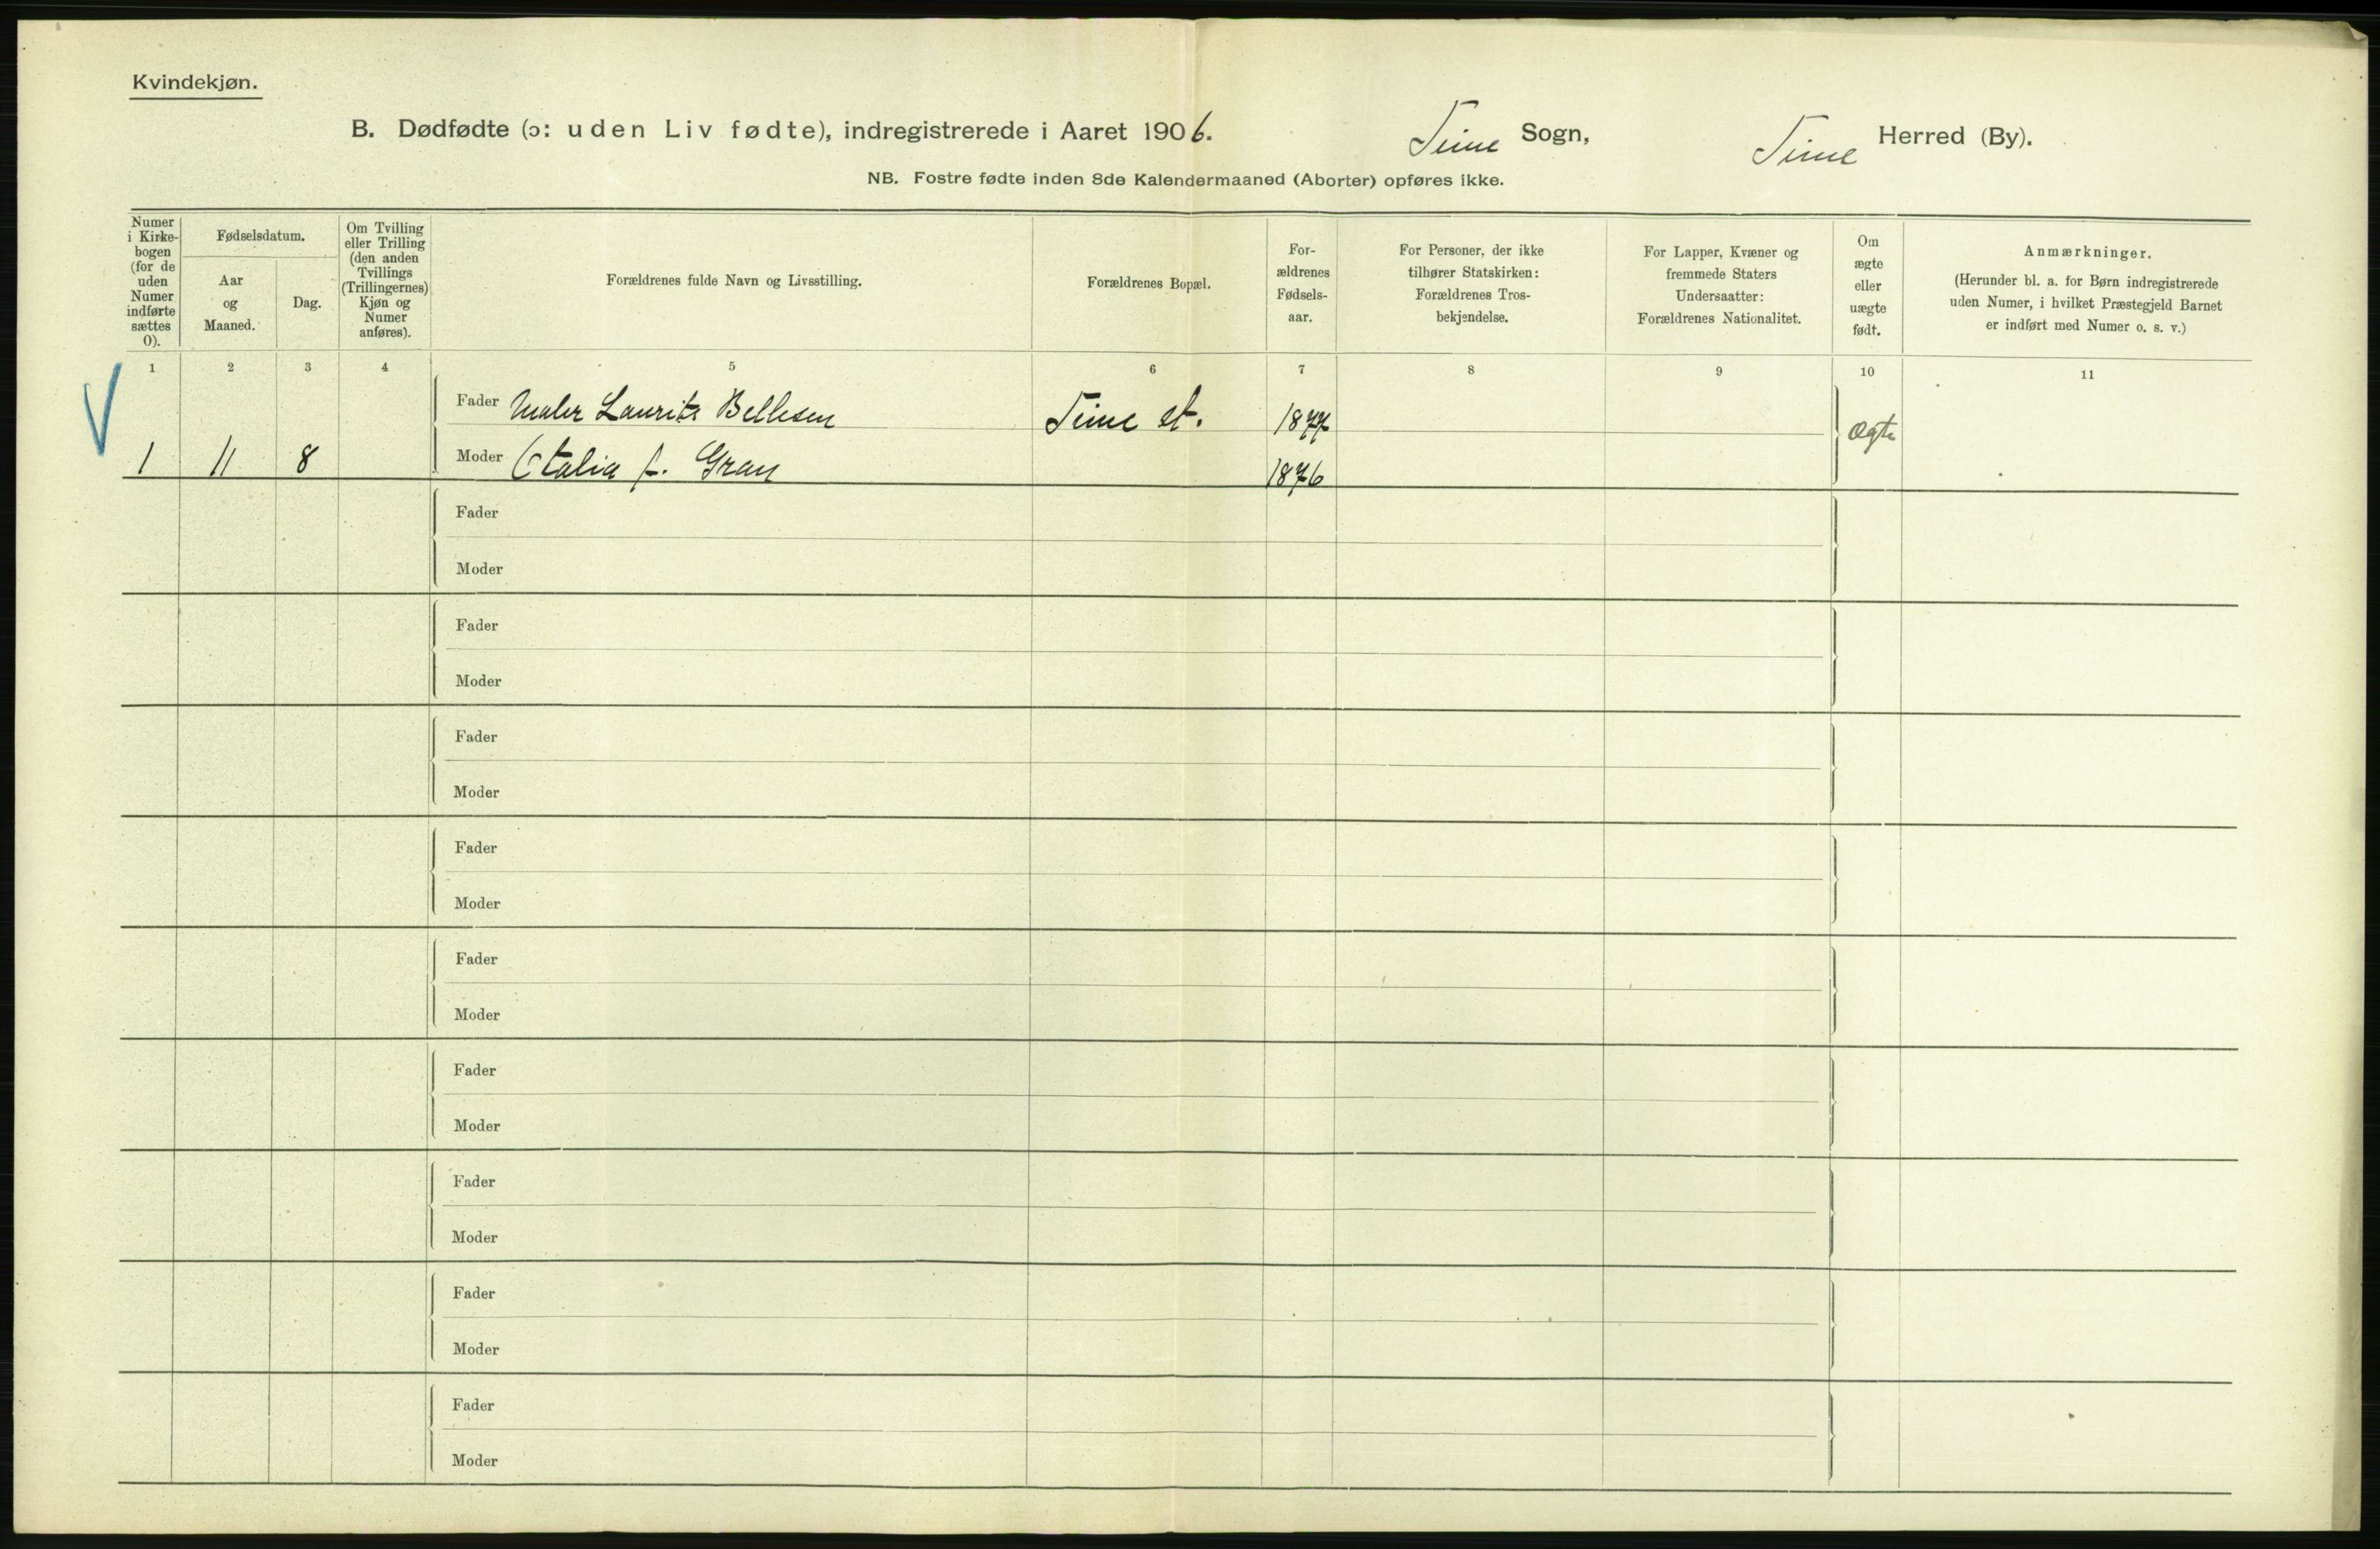 Kvindekjøn.
B. Dødfødte (ɔ: uden Liv fødte), indregistrerede i Aaret 1906. Time Sogn, Time Herred (By).
NB. Fostre fødte inden 8de Kalendermaaned (Aborter) opføres ikke.
Numer
i Kirke-
bogen
(for de
uden
Numer
indførte
sættes
0).
Fødselsdatum.
Aar
og
Maaned.
Dag.
Om Tvilling
eller Trilling
(den anden
Tvillings
(Trillingernes)
Kjøn og
Numer
anføres).
Forældrenes fulde Navn og Livsstilling.
Forældrenes Bopæl.
For-
ældrenes
Fødsels-
aar.
For Personer, der ikke
tilhører Statskirken:
Forældrenes Tros-
bekjendelse.
For Lapper, Kvæner og
fremmede Staters
Undersaatter:
Forældrenes Nationalitet.
Om
ægte
eller
uægte
født.
Anmærkninger.
(Herunder bl. a. for Børn indregistrerede
uden Numer, i hvilket Præstegjeld Barnet
er indført med Numer o. s. v.)
1 2 3 4 5 6 7 8 9 10 11
Fader Maler Laurits Bellesen Time st. 1877 Ægte
1 11 8 Moder Otalia f. Gran 1876
Fader
Moder
Fader
Moder
Fader
Moder
Fader
Moder
Fader
Moder
Fader
Moder
Fader
Moder
Fader
Moder
Fader
Moder